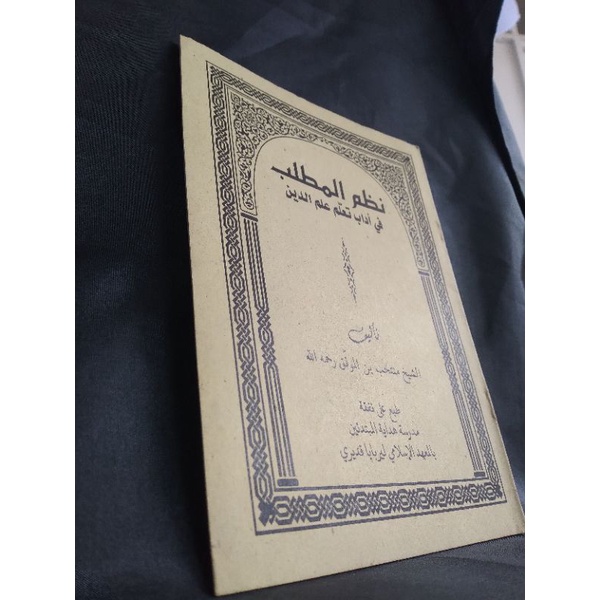 نظم المطلب
في آداب تعلّم علم الدين
تأليف
الشيخ منتخب بن الموفّق رحمه الله
طبع على نفقة
مدرسة هداية المبتدئين
بالمعهد الإسلامي ليربايا قديري